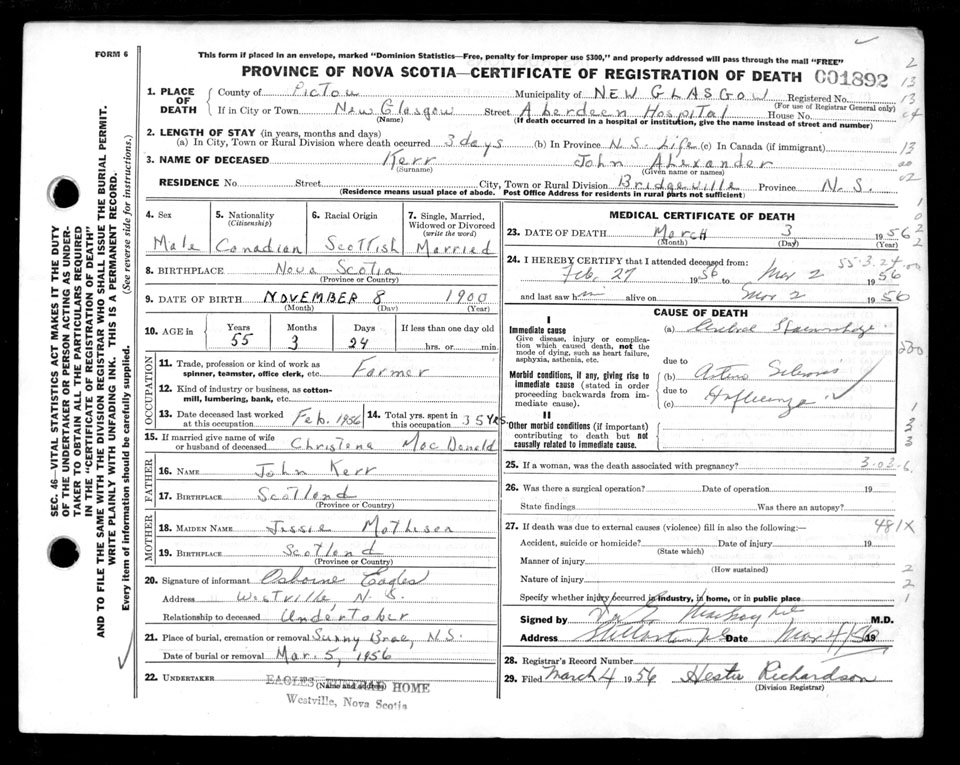 FORM 6
This form if placed in an envelope, marked "Dominion Statistics—Free, penalty for improper use $300," and properly addressed will pass through the mail "FREE"
PROVINCE OF NOVA SCOTIA—CERTIFICATE OF REGISTRATION OF DEATH 001892
1. PLACE OF DEATH
County of Pictou Municipality of NEW GLASGOW Registered No.
(For use of Registrar General only)
If in City or Town New Glasgow Street Aberdeen Hospital House No.
(Name) (If death occurred in a hospital or institution, give the name instead of street and number)
2. LENGTH OF STAY (in years, months and days)
(a) In City, Town or Rural Division where death occurred 3 days (b) In Province N.S. Life (c) In Canada (if immigrant)
3. NAME OF DECEASED Kerr John Alexander
(Surname) (Given name or names)
RESIDENCE No. Street City, Town or Rural Division Bridgeville Province N.S.
(Residence means usual place of abode. Post Office Address for residents in rural parts not sufficient)
4. Sex Male
5. Nationality (Citizenship) Canadian
6. Racial Origin Scottish
7. Single, Married, Widowed or Divorced (write the word) Married
8. BIRTHPLACE Nova Scotia
(Province or Country)
9. DATE OF BIRTH NOVEMBER 8 1900
(Month) (Day) (Year)
10. AGE in Years 55 Months 3 Days 24 If less than one day old hrs. or min.
OCCUPATION
11. Trade, profession or kind of work as spinner, teamster, office clerk, etc. Farmer
12. Kind of industry or business, as cotton-mill, lumbering, bank, etc.
13. Date deceased last worked at this occupation Feb. 1956
14. Total yrs. spent in this occupation 35 Yrs.
15. If married give name of wife or husband of deceased Christena MacDonald
FATHER
16. NAME John Kerr
17. BIRTHPLACE Scotland
(Province or Country)
MOTHER
18. MAIDEN NAME Jessie Matheson
19. BIRTHPLACE Scotland
(Province or Country)
20. Signature of informant Osborne Eagles
Address Westville N.S.
Relationship to deceased Undertaker
21. Place of burial, cremation or removal Sunny Brae, N.S.
Date of burial or removal Mar. 5, 1956
22. UNDERTAKER EAGLES FUNERAL HOME
(Name and address)
Westville, Nova Scotia
MEDICAL CERTIFICATE OF DEATH
23. DATE OF DEATH March 3 1956
(Month) (Day) (Year)
24. I HEREBY CERTIFY that I attended deceased from: 55.3.24
Feb, 27 1956 to Mar 2 1956
and last saw him alive on Mar 2 1956
CAUSE OF DEATH
I
Immediate cause
Give disease, injury or complication which caused death, not the mode of dying, such as heart failure, asphyxia, asthenia, etc.
(a)
due to
Morbid conditions, if any, giving rise to immediate cause (stated in order proceeding backwards from immediate cause).
(b)
due to
(c)
II
Other morbid conditions (if important) contributing to death but not causally related to immediate cause.
25. If a woman, was the death associated with pregnancy? 3-03-6.
26. Was there a surgical operation? Date of operation 19
State findings Was there an autopsy?
27. If death was due to external causes (violence) fill in also the following:— 481X
Accident, suicide or homicide? Date of injury 19
(State which)
Manner of injury
(How sustained)
Nature of injury
Specify whether injury occurred in industry, in home, or in public place
Signed by M.D.
Address Date Mar 4/56 19
28. Registrar's Record Number
29. Filed March 4 1956 Hester Richardson
(Division Registrar)
SEC. 46—VITAL STATISTICS ACT MAKES IT THE DUTY
OF THE UNDERTAKER OR PERSON ACTING AS UNDER-
TAKER TO OBTAIN ALL THE PARTICULARS REQUIRED
IN THE "CERTIFICATE OF REGISTRATION OF DEATH"
AND TO FILE THE SAME WITH THE DIVISION REGISTRAR WHO SHALL ISSUE THE BURIAL PERMIT.
WRITE PLAINLY WITH UNFADING INK. THIS IS A PERMANENT RECORD.
Every item of information should be carefully supplied. (See reverse side for instructions.)